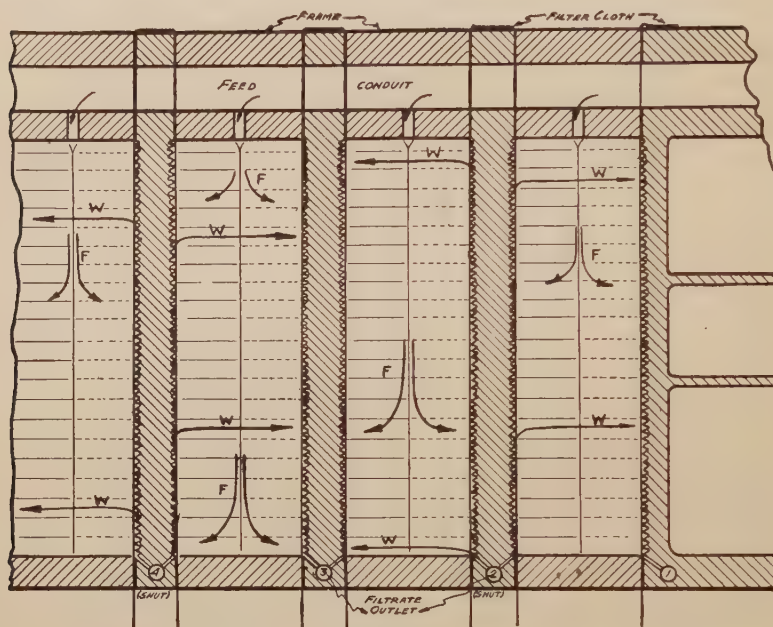 FRAME
FILTER CLOTH
FEED CONDUIT
W
F
W
F
W
F
W
F
W
W
F
W
W
4
3
2
1
(SHUT)
FILTRATE
OUTLET
(SHUT)